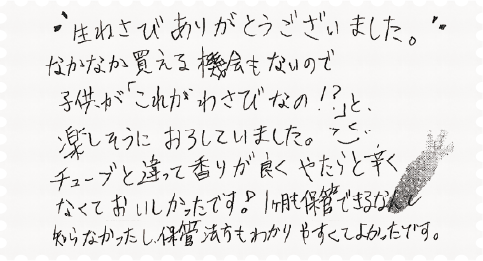 "生わさびありがとうございました。"
なかなか買える機会もないので
子供が「これがわさびなの!?」と、
楽しそうにおろしていました。
チューブと違って香りが良くやたらと辛く
なくておいしかったです!1ヶ月も保管できるなんて
知らなかったし、保管法方もわかりやすくてよかったです。